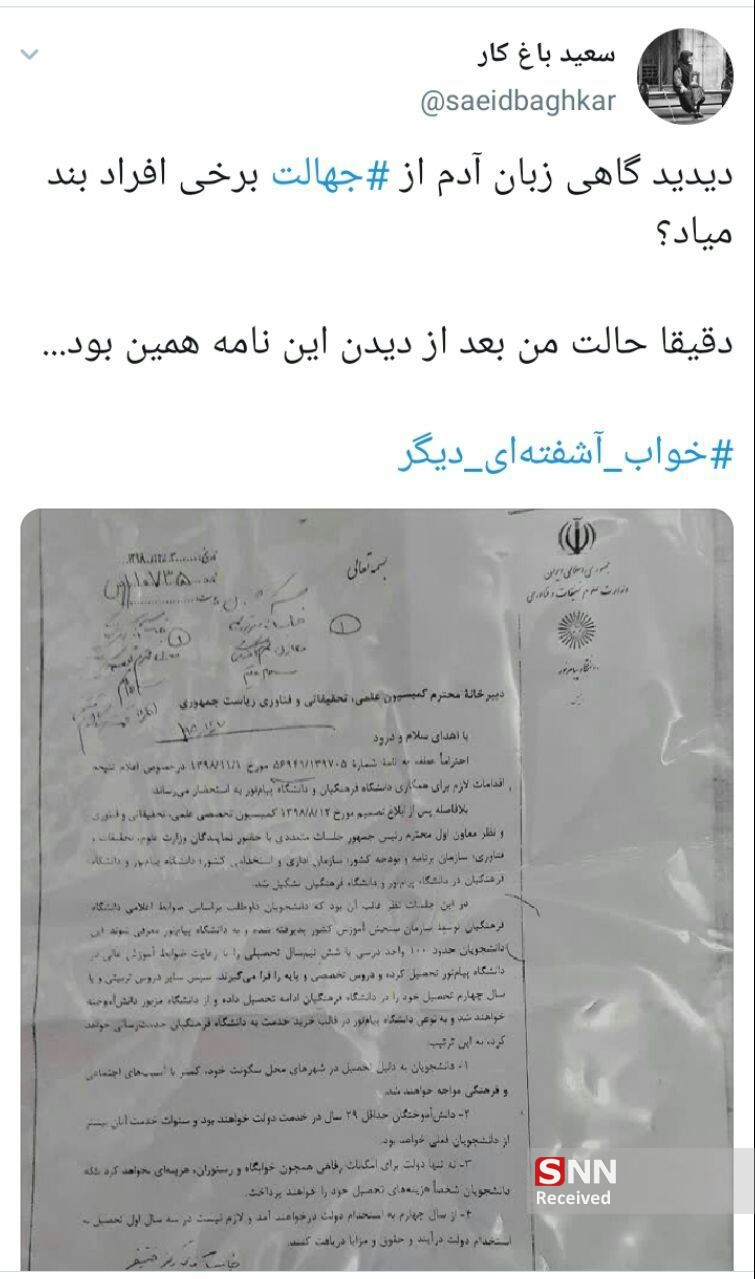 سعید باغ کار
@saeidbaghkar
دیدید گاهی زبان آدم از #جهالت برخی افراد بند
میاد؟
دقیقا حالت من بعد از دیدن این نامه همین بود...
#خواب_آشفته‌ای_دیگر
بسمه تعالی
جمهوری اسلامی ایران
وزارت علوم تحقیقات و فناوری
دانشگاه پیام نور
دبیرخانهٔ محترم کمیسیون علمی، تحقیقاتی و فناوری ریاست جمهوری
با اهدای سلام و درود
احتراماً عطف به نامهٔ شمارهٔ ۵۶۹۴۶/۱۳۹۷۰۵ مورخ ۱۳۹۸/۱۱/۱ در خصوص اعلام نتیجه
اقدامات لازم برای همکاری دانشگاه فرهنگیان و دانشگاه پیام‌نور به استحضار می‌رساند
بلافاصله پس از ابلاغ تصمیم مورخ ۱۳۹۸/۸/۱۲ کمیسیون تخصصی علمی، تحقیقاتی و فناوری
و نظر معاون اول محترم رئیس جمهور جلسات متعددی با حضور نمایندگان وزارت علوم، تحقیقات و
فناوری؛ سازمان برنامه و بودجه کشور؛ سازمان اداری و استخدامی کشور؛ دانشگاه پیام‌نور و دانشگاه
فرهنگیان در دانشگاه پیام‌نور و دانشگاه فرهنگیان تشکیل شد.
در این جلسات نظر غالب آن بود که دانشجویان داوطلب براساس ضوابط اعلامی دانشگاه
فرهنگیان توسط سازمان سنجش آموزش کشور پذیرفته شده و به دانشگاه پیام‌نور معرفی شوند این
دانشجویان حدود ۱۰۰ واحد درسی یا شش نیم‌سال تحصیلی را با رعایت ضوابط آموزش عالی در
دانشگاه پیام‌نور تحصیل کرده و دروس تخصصی و پایه را فرا می‌گیرند. سپس سایر دروس تربیتی و یا
سال چهارم تحصیل خود را در دانشگاه فرهنگیان ادامه تحصیل داده و از دانشگاه مزبور دانش‌آموخته
خواهند شد و به نوعی دانشگاه پیام‌نور در قالب خرید خدمت به دانشگاه فرهنگیان خدمت‌رسانی خواهد
کرد، به این ترتیب:
۱- دانشجویان به دلیل تحصیل در شهرهای محل سکونت خود، کمتر با آسیب‌های اجتماعی
و فرهنگی مواجه خواهند شد.
۲- دانش‌آموختگان حداقل ۲۹ سال در خدمت دولت خواهند بود و سنوات خدمت آنان بیشتر
از دانشجویان فعلی خواهد بود.
۳- نه تنها دولت برای امکانات رفاهی همچون خوابگاه و رستوران، هزینه‌ای نخواهد کرد بلکه
دانشجویان شخصاً هزینه‌های تحصیل خود را خواهند پرداخت.
۴- از سال چهارم به استخدام دولت درخواهند آمد و لازم نیست در سه سال اول تحصیل به
استخدام دولت درآیند و حقوق و مزایا دریافت کنند.
SNN
Received